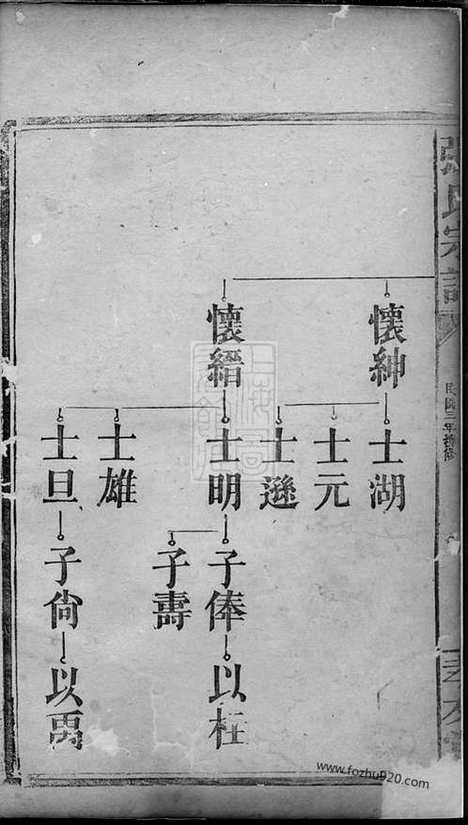 氏宗譜
民國三年
懷紳
士湖
士元
士遜
懷縉
士明
子俸
以枉
子壽
士雄
士旦
子尙
以禹
www.fozhu920.com